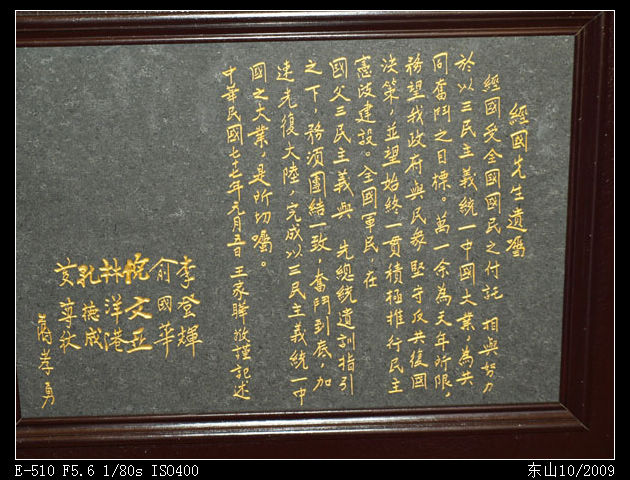 經國先生遺囑
經國受全國國民之付託 相與努力
於以三民主義統一中國大業，為共
同奮鬥之目標。萬一余為天年所限，
務望我政府與民眾堅守反共復國
決策，並望始終一貫積極推行民主
憲政建設。全國軍民，在
國父三民主義與 先總統遺訓指引
之下，務須團結一致，奮鬥到底，加
速光復大陸，完成以三民主義統一中
國之大業，是所切囑。
中華民國七十七年元月五日 王家驊 敬謹記述
李登輝
俞國華
倪文亞
林洋港
孔德成
蔣孝勇
E-510 F5.6 1/80s ISO400
东山10/2009